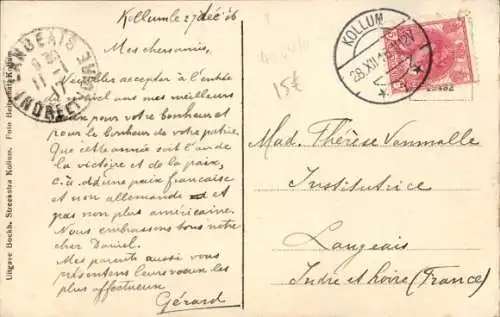 Kollum le 27 déc 16
Mes chers amis,
Veuillez accepter à l'entrée
du nouvel ans mes meilleurs
vœux pour votre bonheur et
pour le bonheur de votre patrie.
Que cette année soit l'an de
la victoire et de la paix,
c.à.d. d'une paix française
et non allemande et
pas non plus américaine.
Nous embrassons tous notre
cher Daniel.
Mes parents aussi vous
présentent leurs vœux les
plus affectueux
Gérard
LANGEAIS
11-1
17
INDRE-ET-LOIRE
Uitgave Boekh. Streensma Kollum. Foto
KOLLUM
28.XII.16
15€
Mad. Thérèse Vanmalle
Institutrice
Langeais
Indre et Loire (France)